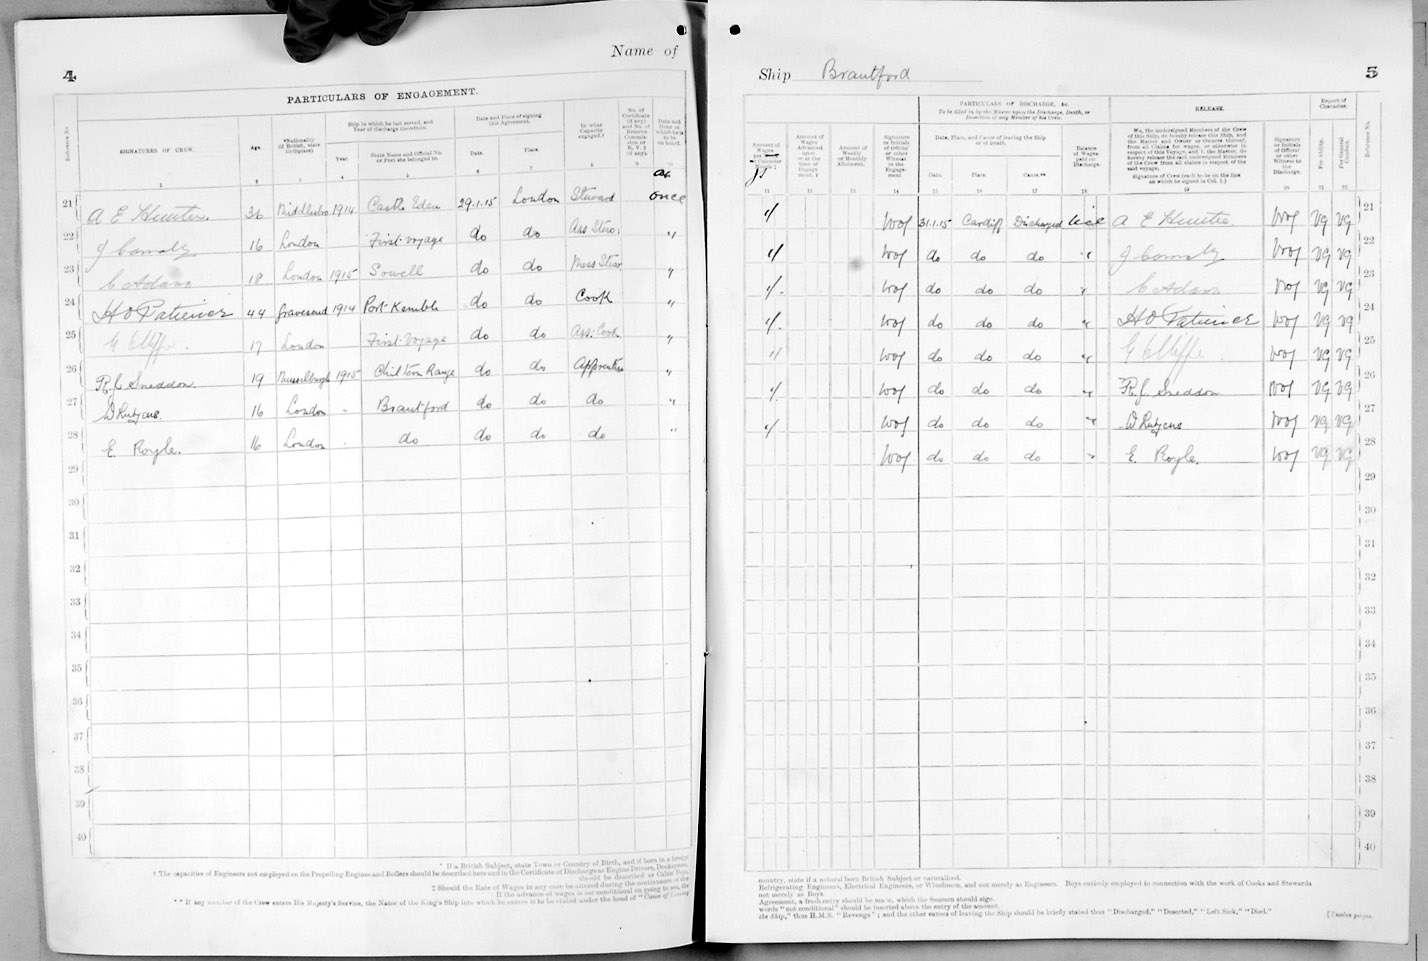 4
Name of
PARTICULARS OF ENGAGEMENT.
Reference No.
SIGNATURES OF CREW.
Age.
*Nationality (if British, state birthplace).
Ship in which he last served, and Year of discharge therefrom.
Year.
State Name and Official No. or Port she belonged to.
Date and Place of signing this Agreement.
Date.
Place.
In what Capacity engaged.†
No. of Certificate (if any)
Date and Hour at which he is to be on board.
1 2 3 4 5 6 8 9 10
at once
21 A E Hunter 36 Middlesbro 1914 Castle Eden 29.1.15 London Steward
22 16 London First Voyage do do Ass Stew. "
23 C Adams 18 London 1915 Sowell do do Mess Stew "
24 44 Gravesend 1914 Port Kembla do do Cook "
25 17 London First Voyage do do Ass. Cook "
26 R. J. Sneddon. 19 Musselburgh 1915 Chiltern Range do do Apprentice "
27 16 London - Brantford do do do "
28 E. Royle. 16 London - do do do do "
29
30
31
32
33
34
35
36
37
38
39
40
* If a British Subject, state Town or Country of Birth, and if born in a foreign
† The capacities of Engineers not employed on the Propelling Engines and Boilers should be described here and in the Certificate of Discharge as Engine Drivers, Donkeymen,
should be described as Cabin Boys,
‡ Should the Rate of Wages in any case be altered during the continuance of the
If the advance of wages is not conditional on going to sea, the
** If any member of the Crew enters His Majesty's Service, the Name of the King's Ship into which he enters is to be stated under the head of "Cause of Leaving
Ship Brantford
5
PARTICULARS OF DISCHARGE, &c.
To be filled in by the Master upon the Discharge, Death, or Desertion of any Member of his Crew.
RELEASE.
Report of Character.
Amount of Wages per Calendar Month
Amount of Wages Advanced upon or at the time of Engagement.‡
Amount of Weekly or Monthly Allotment.
Signature or Initials of Official or other Witness to the Engagement
Date, Place, and Cause of leaving the Ship or of Death.
Date.
Place.
Cause.**
Balance of Wages paid on Discharge.
We, the undersigned Members of the Crew of this Ship, do hereby release this Ship, and the Master and Owner or Owners thereof, from all Claims for wages, or otherwise in respect of this Voyage, and I, the Master, do hereby release the said undersigned Members of the Crew from all claims in respect of the said voyage.
Signature of Crew (each to be on the line on which he signed in Col. 1.)
Signature or Initials of Official or other Witness to the Discharge.
For Ability.
For General Conduct.
Reference No.
11 12 13 14 15 16 17 18 19 20 21 22
1/ 31.1.15 Cardiff Discharged A E Hunter VG VG 21
1/ do do do " VG VG 22
1/ do do do " C Adams VG VG 23
1/ do do do " VG VG 24
1/ do do do " VG VG 25
1/ do do do " R. J. Sneddon VG VG 26
1/ do do do " VG VG 27
do do do " E. Royle. VG VG 28
29
30
31
32
33
34
35
36
37
38
39
40
country, state if a natural born British Subject or naturalised.
Refrigerating Engineers, Electrical Engineers, or Winchmen, and not merely as Engineers. Boys entirely employed in connection with the work of Cooks and Stewards
not merely as Boys.
Agreement, a fresh entry should be made, which the Seamen should sign.
words "not conditional" should be inserted above the entry of the amount.
the Ship," thus H.M.S. "Revenge"; and the other causes of leaving the Ship should be briefly stated thus "Discharged," "Deserted," "Left Sick," "Died."
[Twelve pages.